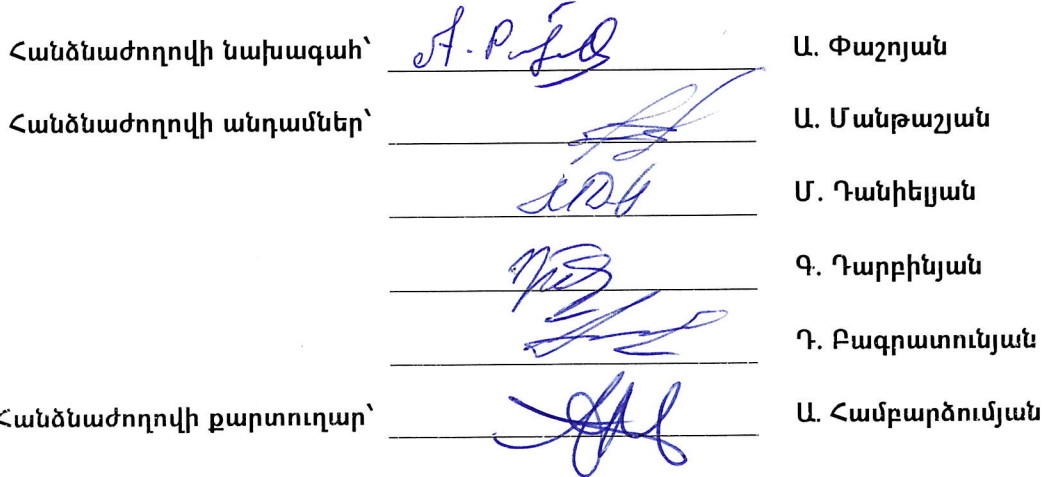 Հանձնաժողովի նախագահ՝ Ա. Փաշոյան
Հանձնաժողովի անդամներ՝ Ա. Մանթաշյան
Մ. Դանիելյան
Գ. Դարբինյան
Դ. Բագրատունյան
Հանձնաժողովի քարտուղար՝ Ա. Համբարձումյան